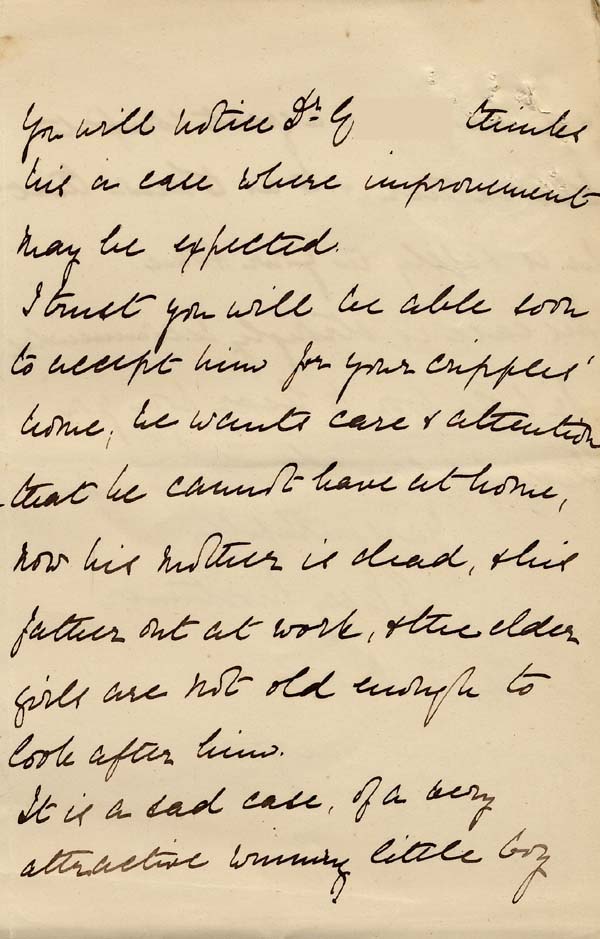 You will notice Dr. G thinks
his a case where improvement
may be expected.
I trust you will be able soon
to accept him for your cripples'
home, he wants care & attention
that he cannot have at home,
now his mother is dead, & his
father out at work, & the elder
girls are not old enough to
look after him.
It is a sad case, of a very
attractive winning little boy